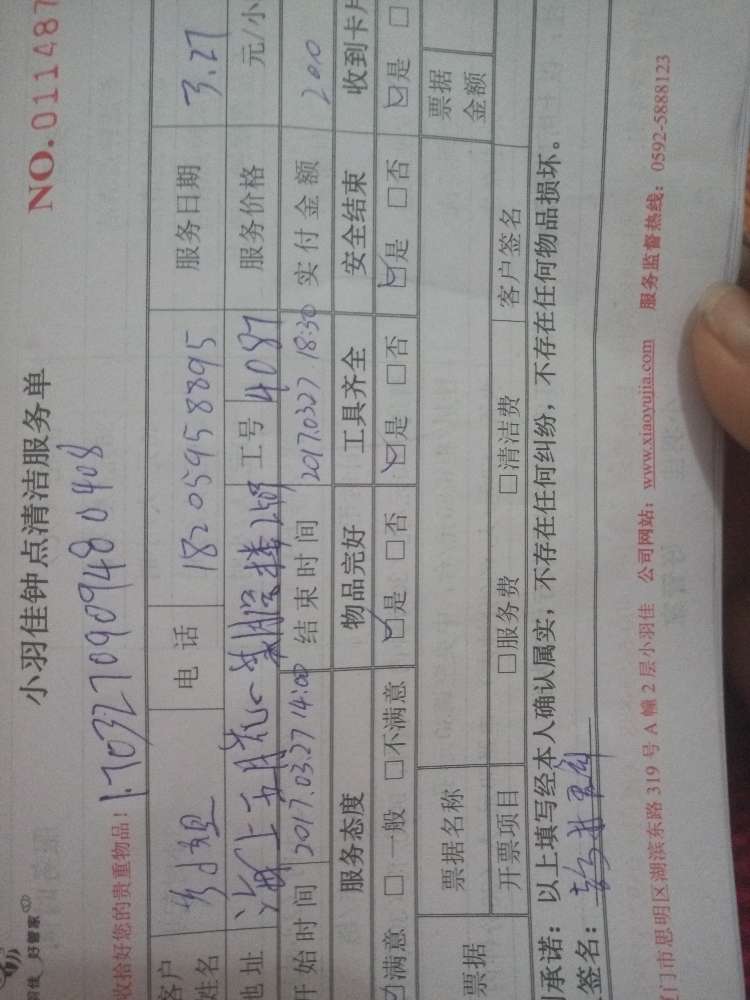 好管家
小羽佳钟点清洁服务单
NO.011487
收拾好您的贵重物品！
1703270909480408
客户姓名 电话 18205958895 服务日期 3.27
地址 工号 4087 服务价格 元/小
开始时间 2017.03.27 14:00 结束时间 2017.0327 18:30 实付金额 2010
服务态度 物品完好 工具齐全 安全结束 收到卡片
☑满意 □一般 □不满意 ☑是 □否 ☑是 □否 ☑是 □否 ☑是 □
票据 票据名称 票据金额
开票项目 □服务费 □清洁费 客户签名
承诺：以上填写经本人确认属实，不存在任何纠纷，不存在任何物品损坏。
签名：
门市思明区湖滨东路 319 号 A 幢 2 层小羽佳 公司网站：www.xiaoyujia.com 服务监督热线：0592-5888123